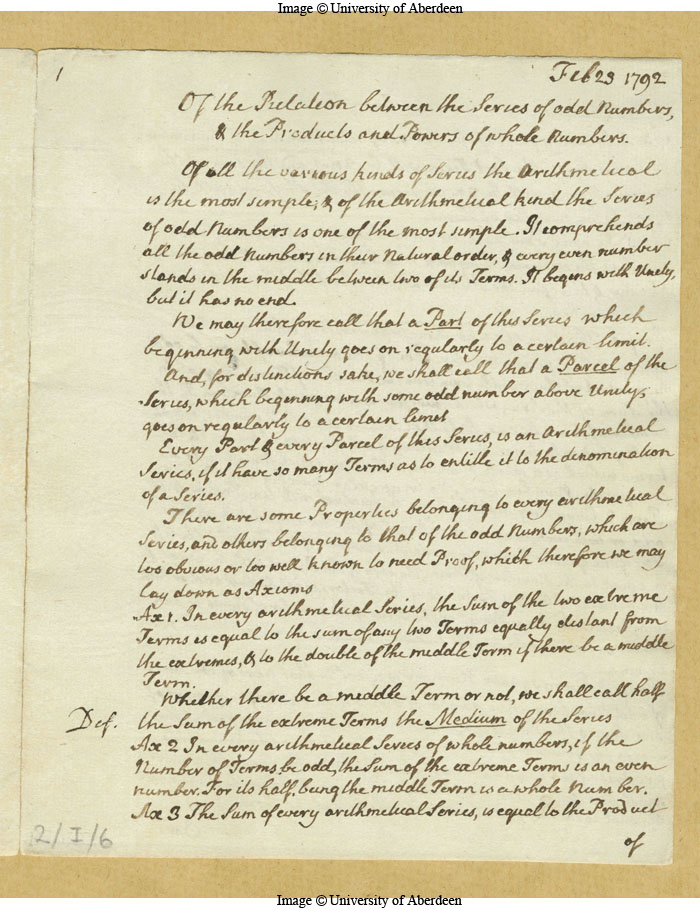 Image © University of Aberdeen
1
Feb 23 1792
Of the Relation between the Series of odd Numbers,
& the Products and Powers of whole Numbers.
Of all the various kinds of Series the Arithmetical
is the most simple; & of the Arithmetical kind the Series
of odd Numbers is one of the most simple. It comprehends
all the odd Numbers in their Natural order, & every even number
stands in the middle between two of its Terms. It begins with Unity,
but it has no end.
We may therefore call that a Part of this Series which
beginning with Unity goes on regularly to a certain limit.
And, for distinctions sake, we shall call that a Parcel of the
Series, which beginning with some odd number above Unity,
goes on regularly to a certain limit
Every Part & every Parcel of this Series, is an Arithmetical
Series, if it have so many Terms as to entitle it to the denomination
of a Series.
There are some Properties belonging to every arithmetical
Series, and others belonging to that of the odd Numbers, which are
too obvious or too well known to need Proof, which therefore we may
lay down as Axioms
Ax 1. In every arithmetical Series, the Sum of the two extreme
Terms is equal to the sum of any two Terms equally distant from
the extremes, & to the double of the middle Term if there be a middle
Term.
Whether there be a middle Term or not, we shall call half
Def. the Sum of the extreme Terms the Medium of the Series
Ax 2 In every arithmetical Series of whole numbers, if the
Number of Terms be odd, the Sum of the extreme Terms is an even
number. For its half, being the middle Term is a whole Number.
Ax 3 The Sum of every arithmetical Series, is equal to the Product
of
2/I/6
Image © University of Aberdeen